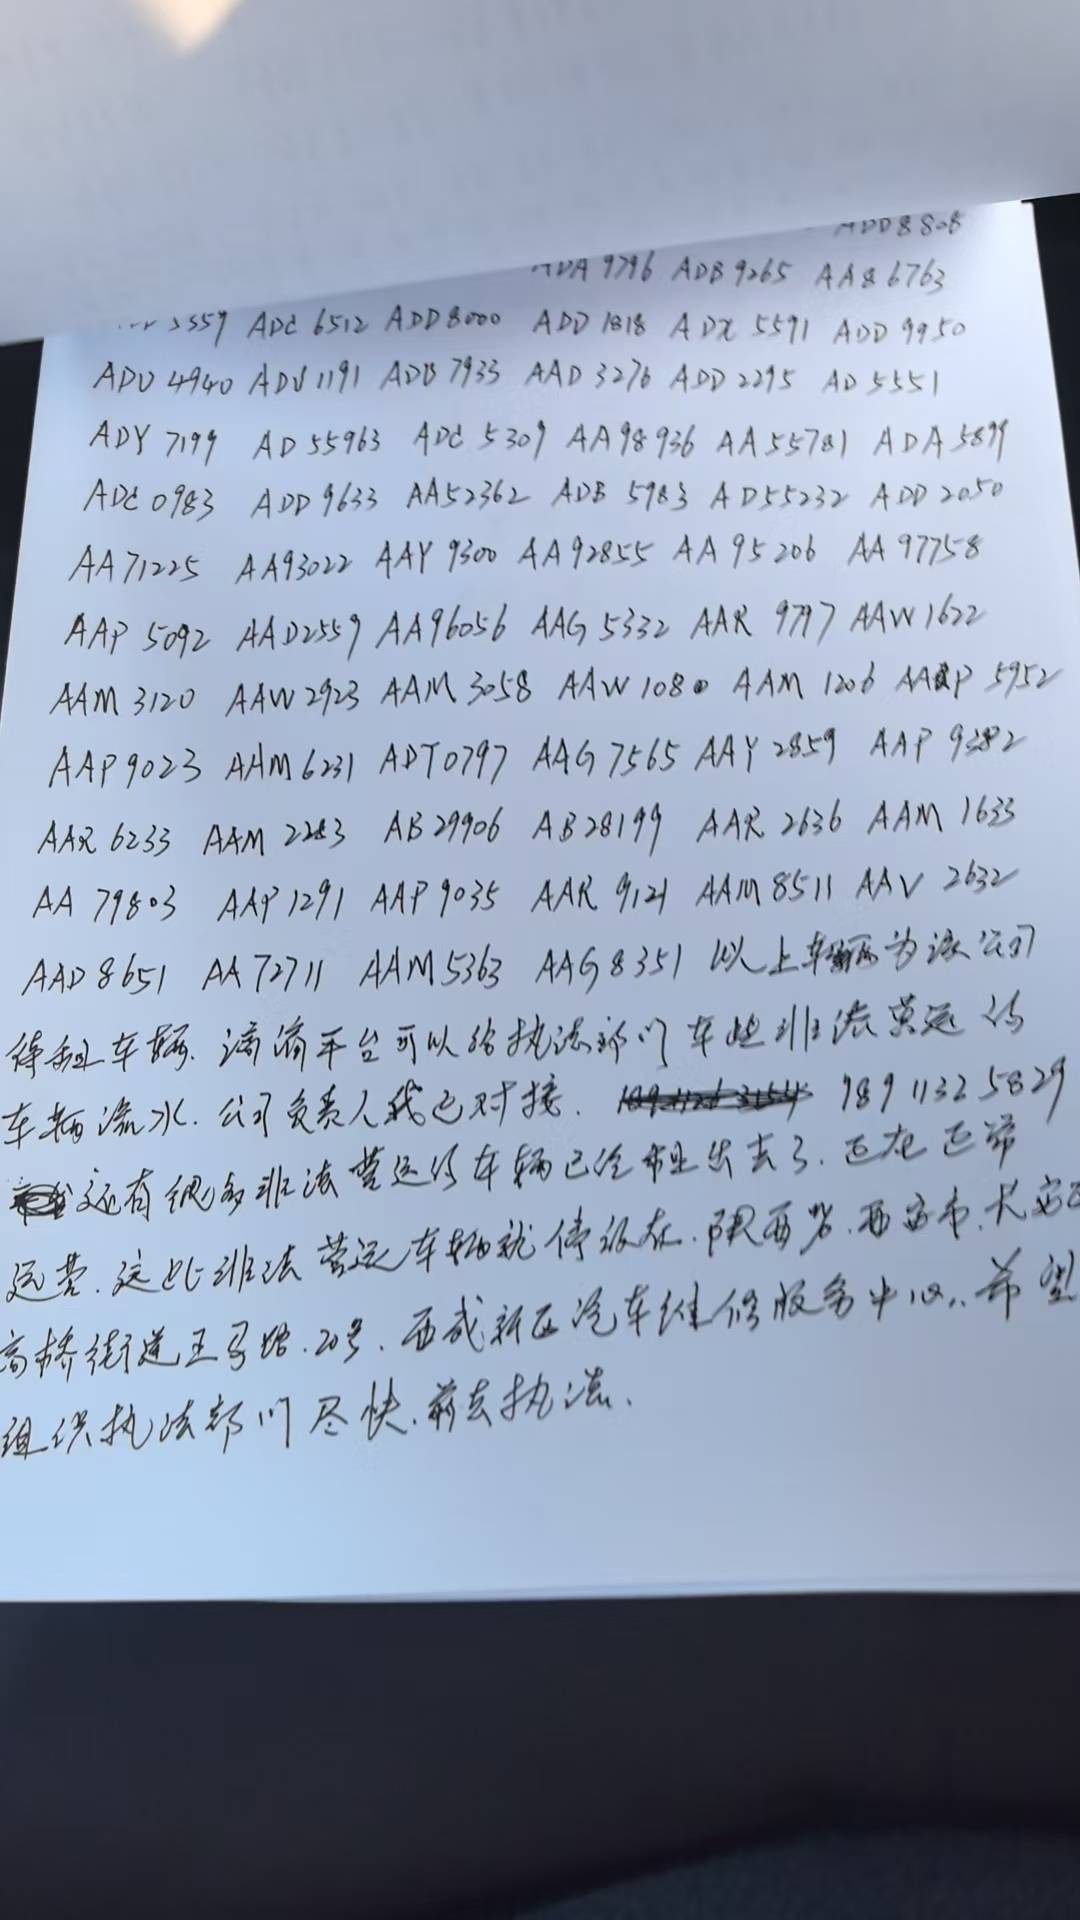 ADD8808
ADA 9796 ADB 9265 AA86763
5559 ADC 6512 ADD8000 ADD 1818 ADX 5591 ADD 9950
ADU 4940 ADV 1191 ADB 7933 AAD 3276 ADD 2295 AD 5551
ADY 7199 AD 55963 ADC 5309 AA98936 AA55781 ADA 5899
ADC 0983 ADD 9633 AA52362 ADB 5983 AD55232 ADD 2050
AA71225 AA93022 AAY 9300 AA92855 AA 95206 AA 97758
AAP 5092 AAD2559 AA96056 AAG 5332 AAR 9797 AAW1622
AAM 3120 AAW 2923 AAM 3058 AAW 1080 AAM 1206 AAP 5952
AAP 9023 AAM6231 ADT0797 AAG 7565 AAY 2859 AAP 9382
AAR 6233 AAM 2283 AB 29906 AB28199 AAR 2636 AAM 1633
AA 79803 AAP 1291 AAP 9035 AAR 9121 AAM 8511 AAV 2632
AAD 8651 AA72711 AAM 5363 AAG 8351 以上车辆为该公司
待租车辆.滴滴平台可以给执法部门 车些非法营运的
车辆流水.公司负责人我已对接. 189 1132 5829
还有很多非法营运的车辆已经租出去了.正在正常
运营.这些非法营运车辆就停放在.陕西省.西安市.长安区
高桥街道王马路.20号.西咸新区汽车维修服务中心.希望
组织执法部门尽快.前去执法.